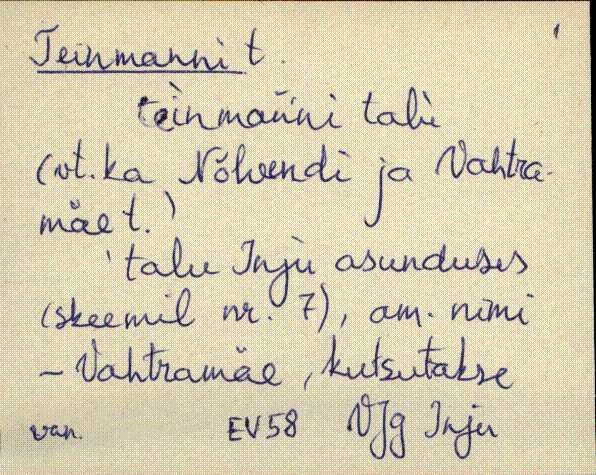 Teinmanni t.
teinmanni talu
(vt. ka Nõlvendi ja Vahtra-
mäe t.)
talu Inju asunduses
(skeemil nr. 7), am. nimi
– Vahtramäe, kutsutakse
van. EV58 VJg Inju